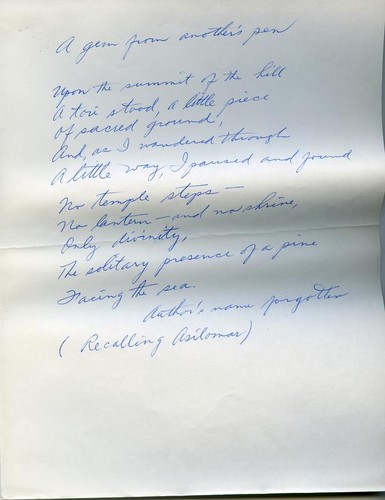 A gem from another's pen
Upon the summit of the hill
A tori stood, a little piece
Of sacred ground,
And, as I wandered through
A little way, I paused and found
No temple steps —
No lantern — and no shrine,
Only divinity,
The solitary presence of a pine
Facing the sea.
Author's name forgotten
( Recalling Asilomar)